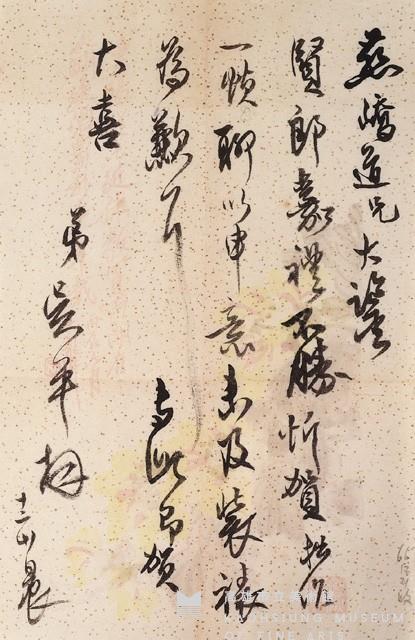 燕嶠道兄大鑒
賢郎嘉禮不勝忻賀拙作
一幀聊以申意未及裝裱
為歉耑此即賀
大喜
弟吳平拜
十二、八晨
高雄市立美術館
KAOHSIUNG MUSEUM
OF FINE ARTS